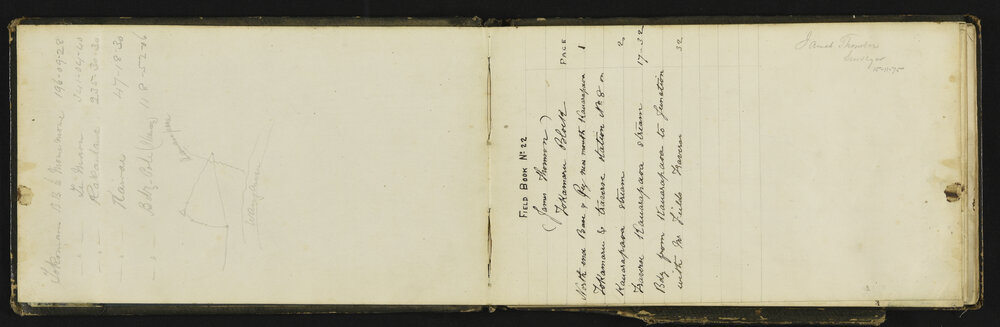 Tokomaru N. to Monument 196-09-28
" " Te Mara 341-54-40
" " Rakahae 235-30-30
" " Kawae 47-18-30
" " Bdy Pole 118-52-26
FIELD BOOK No 22
(James Thomson)
Tokomaru Block
PAGE
North end Base & Pg near mouth Kauarapaoa 1
Tokomaru & traverse station No 8 on
Kauarapaoa stream 2
Traverse Kauarapaoa stream 17-32
Bdy from Kauarapaoa to junction
with Mr Fields Traverse 32
James Thomson
Surveyor
15-11-75